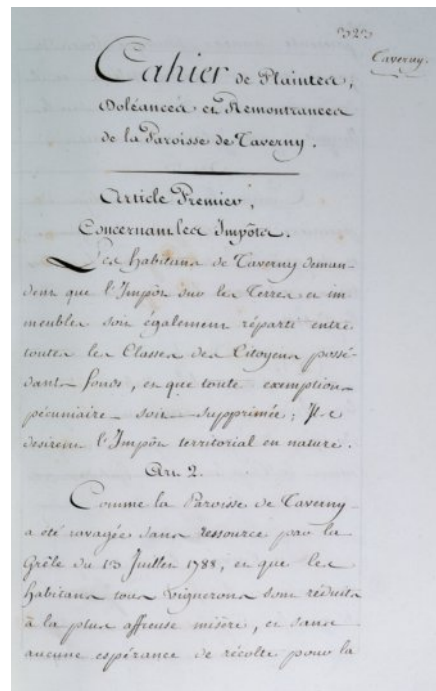 323
Taverny.
Cahier de Plaintes,
Doléances et Remontrances
de la Paroisse de Taverny.
Article Premier,
Concernant les Impôts.
Les habitans de Taverny deman-
dent que l'Impôt sur les Terres et im-
meubles soit également réparti entre
toutes les Classes des Citoyens possé-
dants fonds, et que toute exemption
pécuniaire soit supprimée; Ils
desirent l'Impôt territorial en nature.
Art. 2.
Comme la Paroisse de Taverny
a été ravagée sans ressource par la
Grêle du 13 Juillet 1788, et que les
habitans tous vignerons sont réduits
à la plus affreuse misère, et sans
aucune espérance de récolte pour la